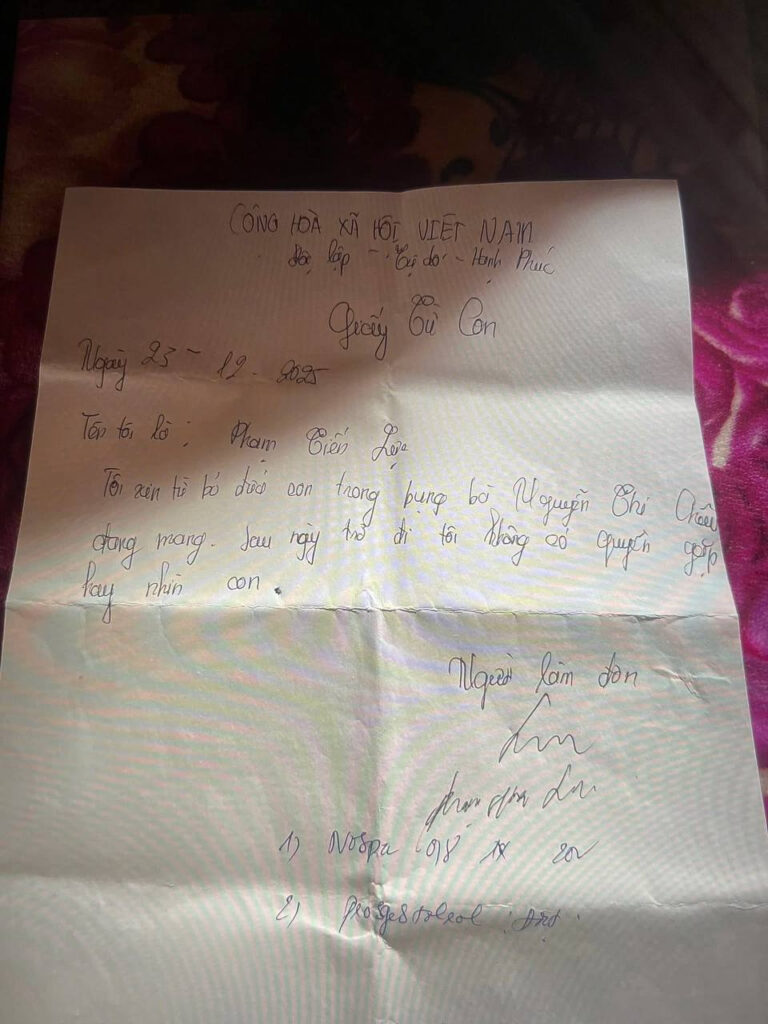 CÔNG HOÀ XÃ HÔỊ VIỆT NAM
Độc lập - Tự do - Hạnh Phúc
Giấy Từ Con
Ngày 23 - 12 - 2025
Tên tôi là : Phạm Tiến Lực
Tôi xin từ bỏ đứa con trong bụng bà Nguyễn Thi Châu
đang mang. Sau ngày trở đi tôi không có quyền gặp
hay nhìn con.
Người làm đơn
1) Nospa
2)